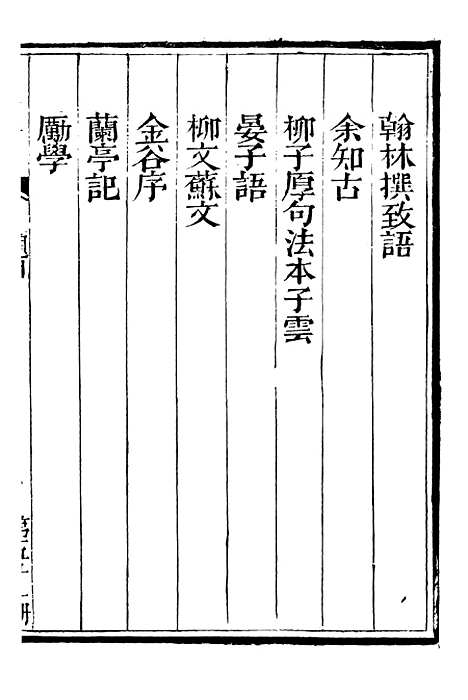 翰林撰致語
余知古
柳子厚句法本子雲
晏子語
柳文蘇文
金谷序
蘭亭記
勵學